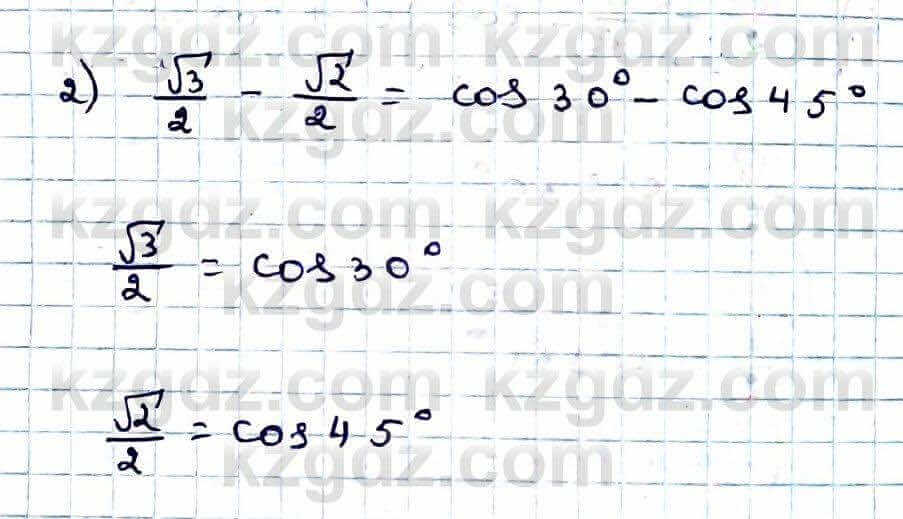 kzgdz.com kzgdz.com
2) √3/2 - √2/2 = cos 30° - cos 45°
kzgdz.com
kzgdz.com kzgdz.com
√3/2 = cos 30°
kzgdz.com
kzgdz.com kzgdz.com
√2/2 = cos 45°
kzgdz.com